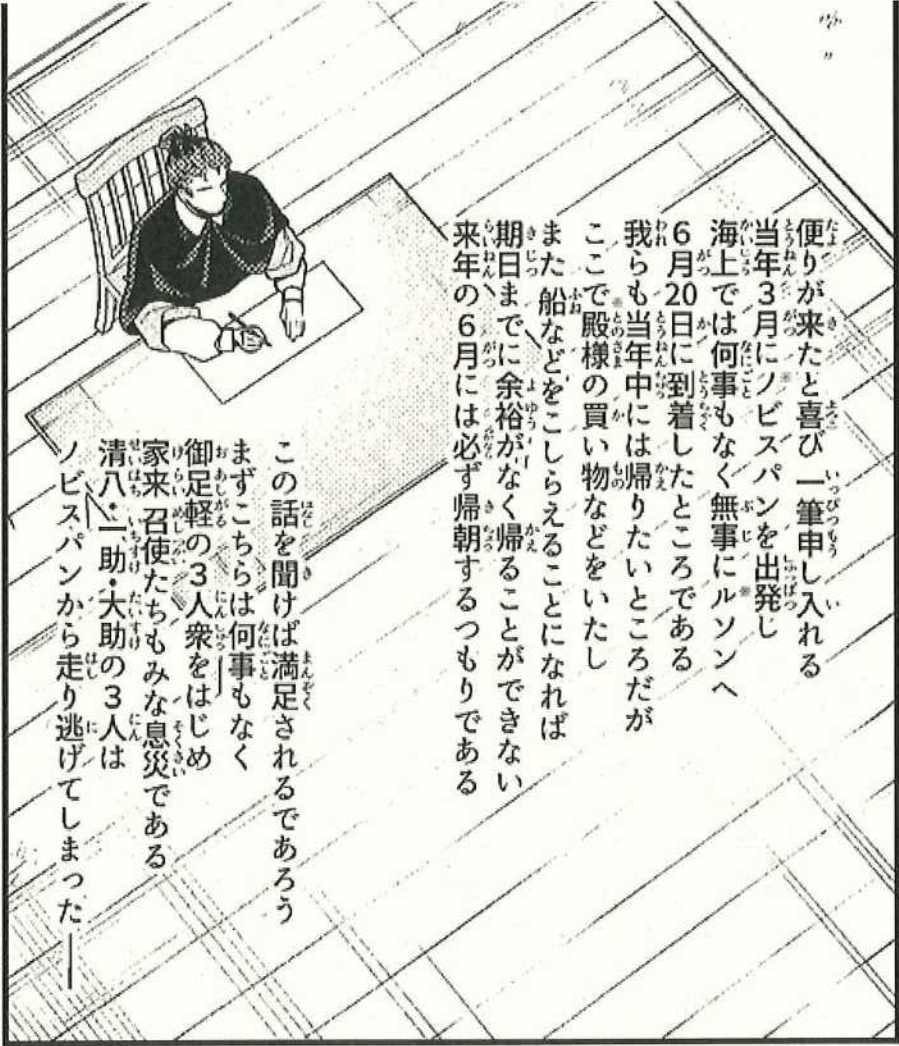 便りが来たと喜び 一筆申し入れる
当年3月に※ノビスパンを出発し
海上では何事もなく無事に※ルソンへ
6月20日に到着したところである
我らも当年中には帰りたいところだが
ここで※殿様の買い物などをいたし
また 船などをこしらえることになれば
期日までに余裕がなく帰ることができない
来年の6月には必ず帰朝するつもりである
この話を聞けば満足されるであろう
まずこちらは何事もなく
御足軽の3人衆をはじめ
家来 召使たちもみな息災である
清八・一助・大助の3人は
ノビスパンから走り逃げてしまった――